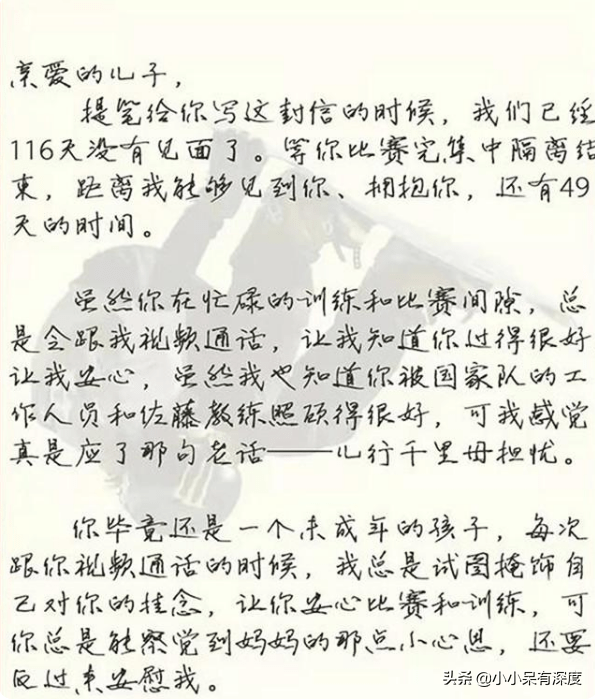 亲爱的儿子，
提笔给你写这封信的时候，我们已经
116天没有见面了。等你比赛完集中隔离结
束，距离我能够见到你、拥抱你，还有49
天的时间。
虽然你在忙碌的训练和比赛间隙，总
是会跟我视频通话，让我知道你过得很好
让我安心，虽然我也知道你被国家队的工
作人员和佐藤教练照顾得很好，可我感觉
真是应了那句老话——儿行千里母担忧。
你毕竟还是一个未成年的孩子，每次
跟你视频通话的时候，我总是试图掩饰自
己对你的挂念，让你安心比赛和训练，可
你总是能察觉到妈妈的那点小心思，还要
反过来安慰我。
头条 @小小呆有深度